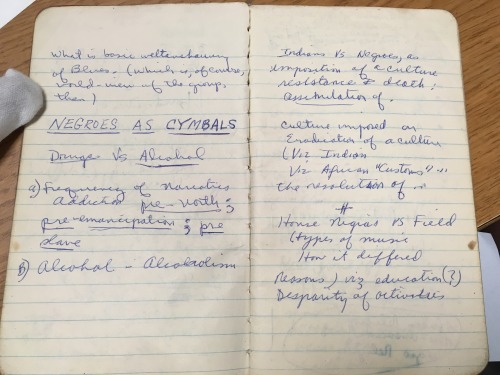 What is basic weltanschauung
of Blues. (Which is, of course,
world-view of the group,
then)
NEGROES AS CYMBALS
Drugs Vs Alcohol
a) Frequency of narcotics
Addiction pre-north;
pre-emancipation; pre
slave
B) Alcohol - Alcoholism
Indians Vs Negroes, as
imposition of a culture
resistance & death;
assimilation of.
Culture imposed on
Eradication of a culture
(Viz Indian
Viz African "Customs"
the resolution of
#
House Nigras VS Field
(types of music
How it differed
Reasons) viz education (?)
Disparity of activities